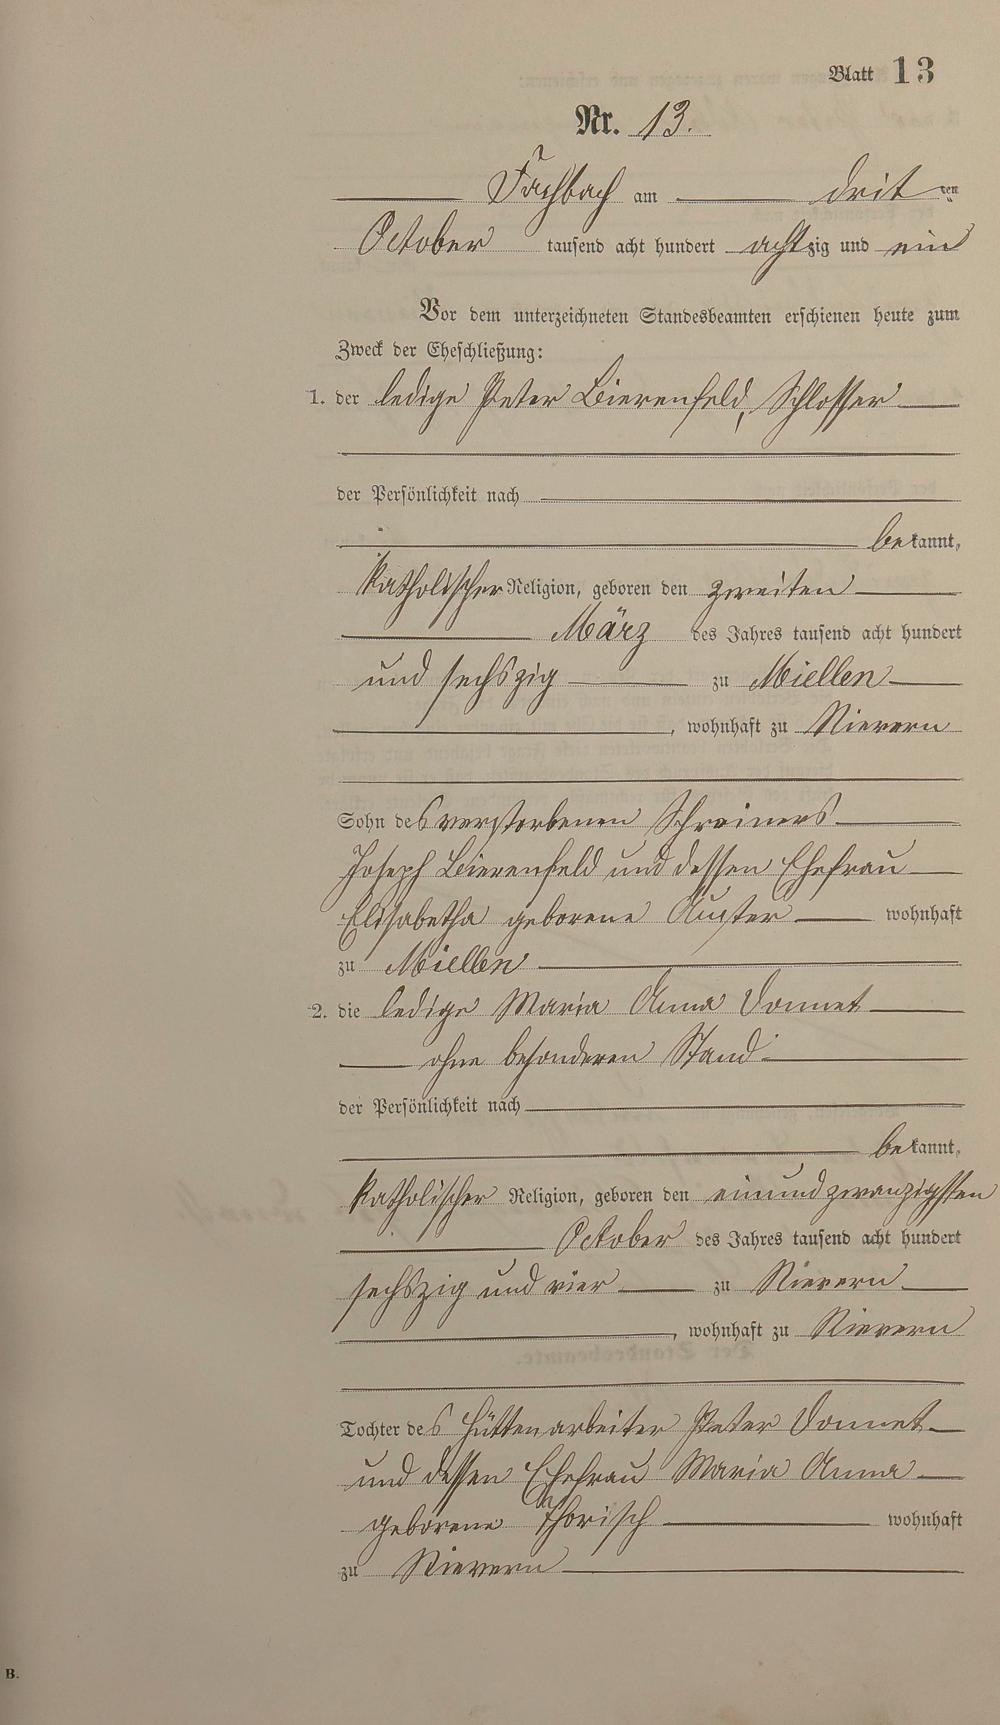 Blatt 13
Nr. 13.
Fachbach am drit ten
October tausend acht hundert achtzig und ein
Vor dem unterzeichneten Standesbeamten erschienen heute zum
Zweck der Eheschließung:
1. der ledige Peter Bierenfeld, Schlosser
der Persönlichkeit nach
bekannt,
katholischer Religion, geboren den zweiten
März des Jahres tausend acht hundert
und sechszig zu Miellen
, wohnhaft zu Nievern
Sohn des verstorbenen Schreiners
Joseph Bierenfeld und dessen Ehefrau
Elisabetha geborene Auster wohnhaft
zu Miellen
2. die ledige Maria Anna Donnet
ohne besonderen Stand
der Persönlichkeit nach
bekannt,
katholischer Religion, geboren den einundzwanzigsten
October des Jahres tausend acht hundert
sechszig und vier zu Nievern
, wohnhaft zu Nievern
Tochter des Hüttenarbeiter Peter Donnet
und dessen Ehefrau Maria Anna
geborene Thorisch wohnhaft
zu Nievern
B.